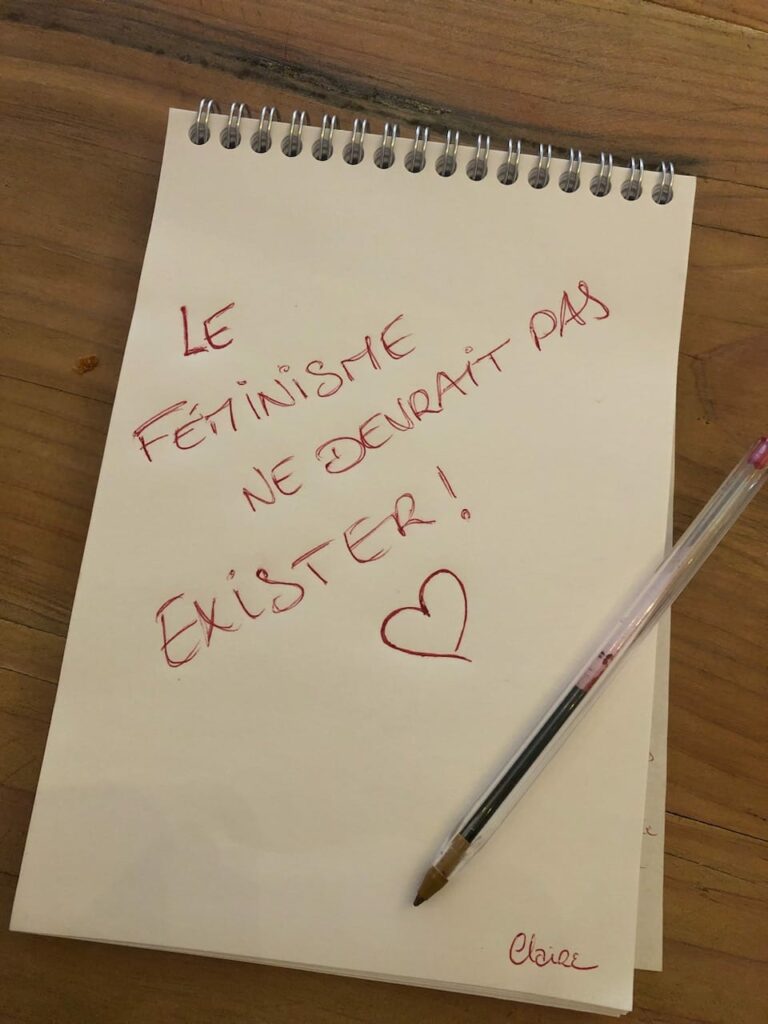 LE
FÉMINISME
NE DEVRAIT PAS
EXISTER!
Claire